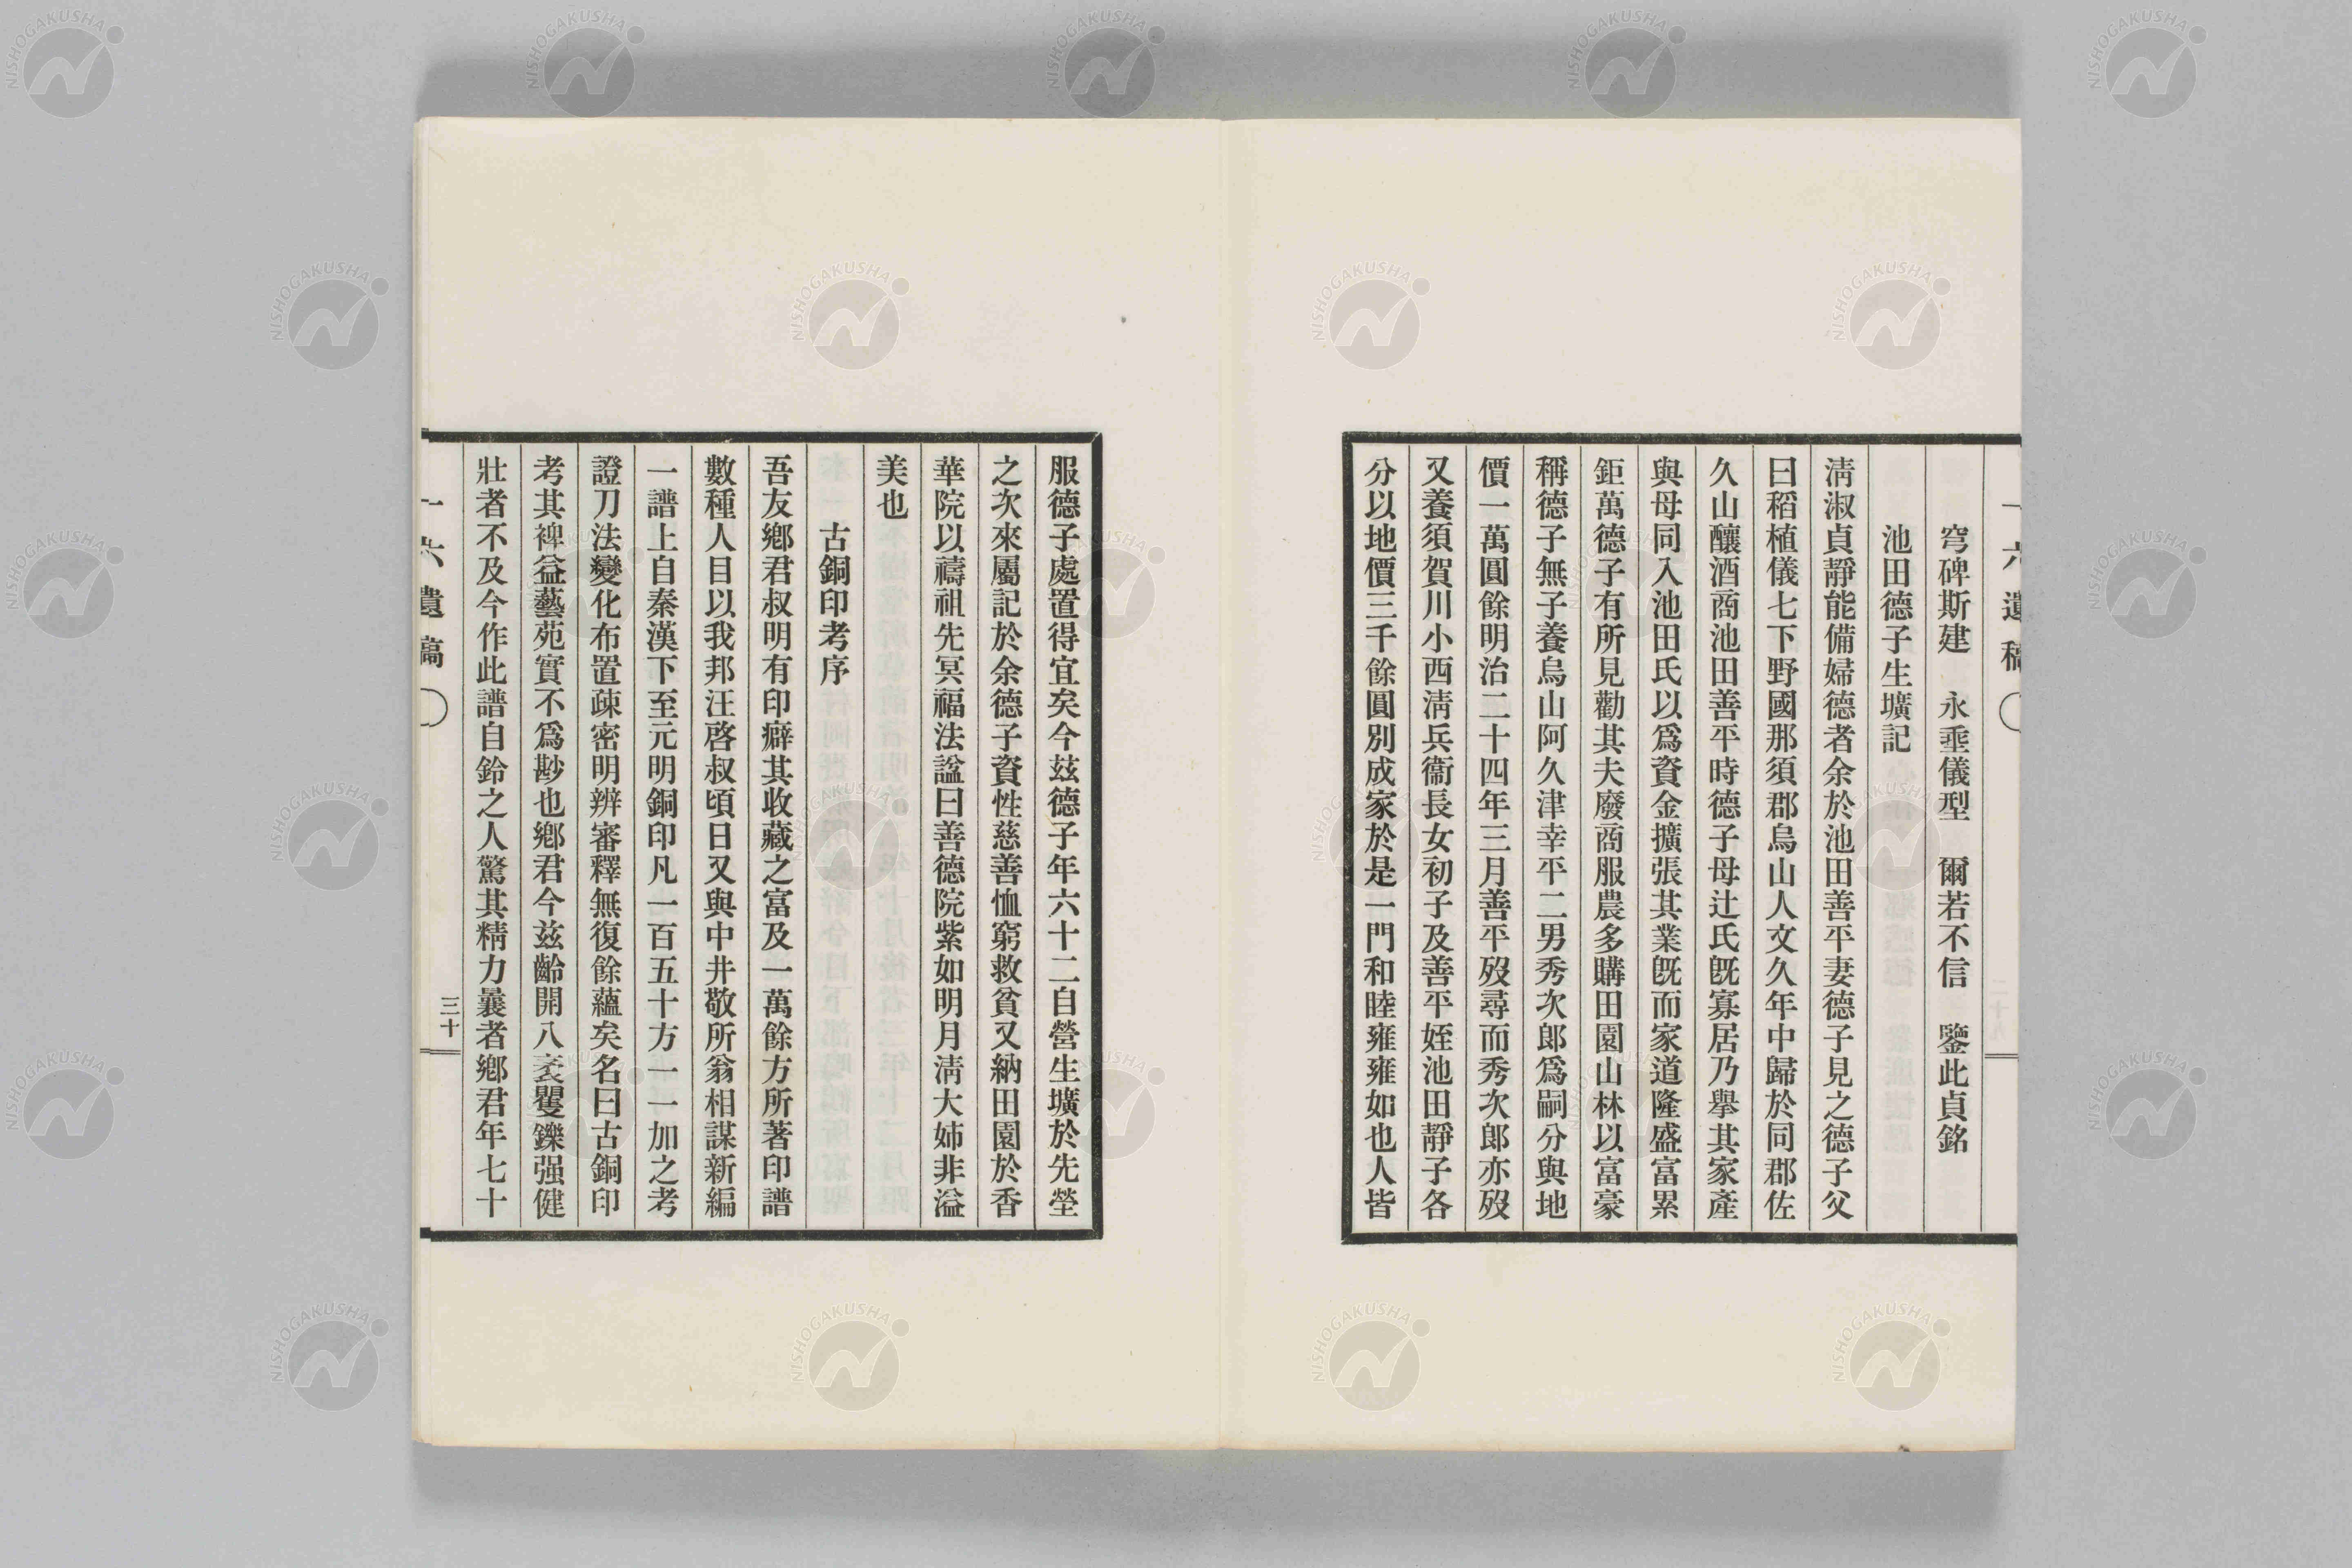 一六遺稿
穹碑斯建　永垂儀型　爾若不信　鑒此貞銘
池田德子生壙記
淸淑貞靜能備婦德者余於池田善平妻德子見之德子父
曰稻植儀七下野國那須郡烏山人文久年中歸於同郡佐
久山釀酒商池田善平時德子母辻氏旣寡居乃擧其家產
與母同入池田氏以爲資金擴張其業旣而家道隆盛富累
鉅萬德子有所見勸其夫廢商服農多購田園山林以富豪
稱德子無子養烏山阿久津幸平二男秀次郎爲嗣分與地
價一萬圓餘明治二十四年三月善平歿尋而秀次郎亦歿
又養須賀川小西淸兵衞長女初子及善平姪池田靜子各
分以地價三千餘圓別成家於是一門和睦雍雍如也人皆
服德子處置得宜矣今玆德子年六十二自營生壙於先塋
之次來屬記於余德子資性慈善恤窮救貧又納田園於香
華院以禱祖先冥福法諡曰善德院紫如明月淸大姉非溢
美也
古銅印考序
吾友鄕君叔明有印癖其收藏之富及一萬餘方所著印譜
數種人目以我邦汪啓叔頃日又與中井敬所翁相謀新編
一譜上自秦漢下至元明銅印凡一百五十方一一加之考
證刀法變化布置疎密明辨審釋無復餘蘊矣名曰古銅印
考其裨益藝苑實不爲尠也鄕君今玆齡開八袠矍鑠强健
壯者不及今作此譜自鈐之人驚其精力曩者鄕君年七十
一六遺稿
三十
NISHOGAKUSHA